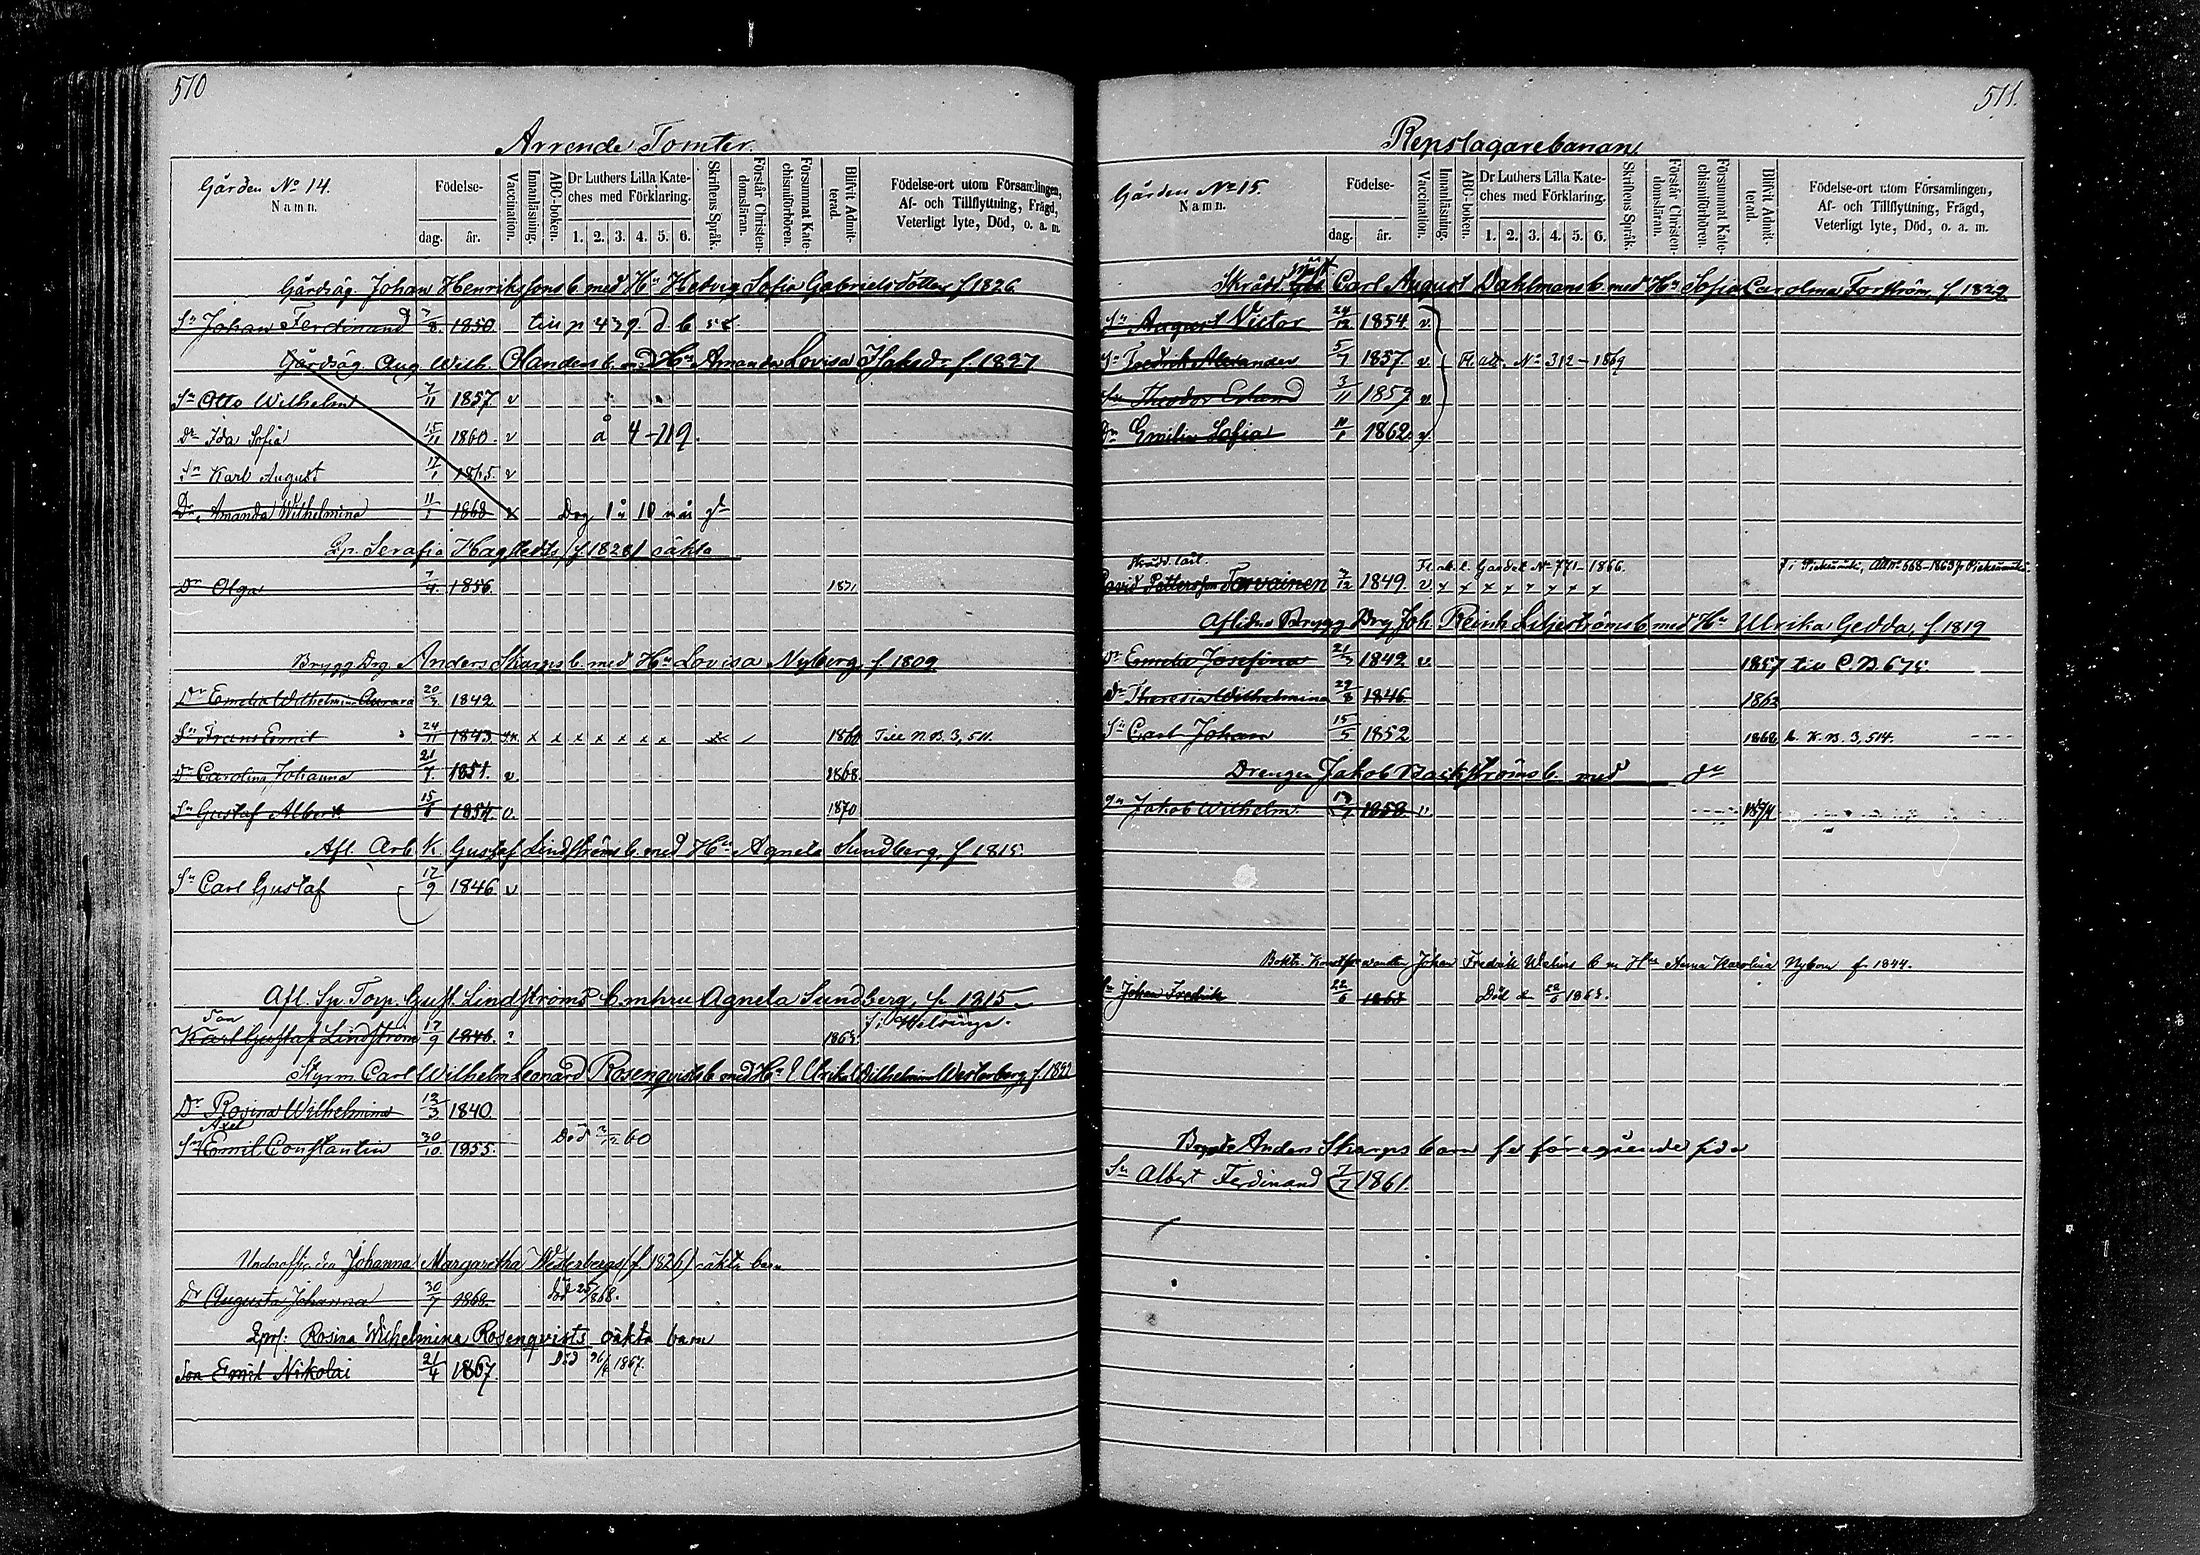 510
Arrende Tomter
Gården No 14.
Namn.
Födelse-
dag.
år.
Vaccination.
Innanläsning.
ABC-boken.
Dr Luthers Lilla Kate-
ches med Förklaring.
1. 2. 3. 4. 5. 6.
Skriftens Språk.
Förstår Christen-
domsläran.
Försummat Kate-
chismiförhören.
Blifvit Admit-
terad.
Födelse-ort utom Församlingen,
Af- och Tillflyttning, Frägd,
Veterligt lyte, Död, o. a. m.
Gårdsäg. Johan Henrikssons b. med Hu Hedvig Sofia Gabrielsdotter f. 1826
Sn Johan Ferdinand 1850
Gårdsäg. Aug. Wilh. Olanders b. med Hu Amanda Lovisa f. 1837
Sn Otto Wilhelm 7/11 1857. v
Dr Ida Sofia 15/11 1860. v å 4-119.
Sn Karl August 17/1 1865. v
Dr Amanda Wilhelmina 11/1 1868 Dog 1 å 10 mån
Serafia Hagstedts (f. 1828) oäkta
Dr Olga 7/4 1856. 1871
Brygg Drg Anders Skarps b. med Hu Lovisa Nyberg f. 1809
Dr Emelia Wilhelmina Aurora 20/3 1842
Sn Frans Emil 24/11 1843. x x x x x x x 1860 Till N.B. 3, 511.
Dr Carolina Johanna 21/7 1851. v. 1868.
Sn Gustaf Albert 15/8 1854. v. 1870
Afl. Arb. K. Gustaf Lindströms b. med Hu Agneta Sundberg, f. 1815.
Sn Carl Gustaf 17/9 1846 v
Afl. Sp. Torp. Gust. Lindströms b. m hru Agneta Sundberg, f. 1815.
Son f. i Helsinge.
Karl Gustaf Lindström 17/9 1846. 1865
Styrm. Carl Wilhelm Leonard Rosenqvists b. med Hu Ulrika Wilhelmina Westerberg f. 1822
Dr Rosina Wilhelmina 12/3 1840.
Axel
Sn Emil Constantin 30/10 1855. Död 60
Johanna Margaretha Westerbergs (f. 1826) oäkta barn
Dr Augusta Johanna 30/7 1868. död 868.
Rosina Wilhelmina Rosenqvists oäkta barn
Son Emil Nikolai 21/4 1867 Död 1867.
511.
Repslagarebanan
Gården No 15
Namn.
Födelse-
dag.
år.
Vaccination.
Innanläsning.
ABC-boken.
Dr Luthers Lilla Kate-
ches med Förklaring.
1. 2. 3. 4. 5. 6.
Skriftens Språk.
Förstår Christen-
domsläran.
Försummat Kate-
chismiförhören.
Blifvit Admit-
terad.
Födelse-ort utom Församlingen,
Af- och Tillflyttning, Frägd,
Veterligt lyte, Död, o. a. m.
Skrädd. Carl August Dahlmans b. med Hu Sofia Carolina Forström f. 1829
Sn August Victor 24/12 1854. v
Sn Fredrik Alexander 5/7 1857. v. Fl. att. No 312-1869
Sn Theodor Erland 3/11 1859 v
Dr Emilia Sofia 11/1 1862. v
Skrädd. lärl. No 771-1866.
David Pettersson Tarvainen 7/12 1849. v. x x x x x x x
Aflidne Brygg Drg Joh. Reinh Liljeströms b. med Hu Ulrika Gedda, f. 1819
Dr Emelie Josefina 21/3 1842 v. 1857 till C.B. 675
Dr Theresia Wilhelmina 29/8 1846. 1863
Sn Carl Johan 15/5 1852 1868 K.B. 3, 514.
Drengen Jakob Backströms b. med do
Sn Jakob Wilhelm. 1858 v. 1874
Johan Fredrik b. m Hu Anna Karolina Nybom f. 1844.
Sn Johan Fredrik 22/6 1865 Död 1865.
Anders Skarps barn fr föregående sida
Sn Albert Ferdinand 7/7 1861.